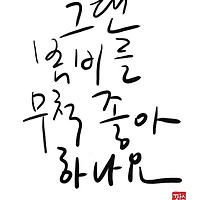 그댄
봄비를
무척 좋아
하나요